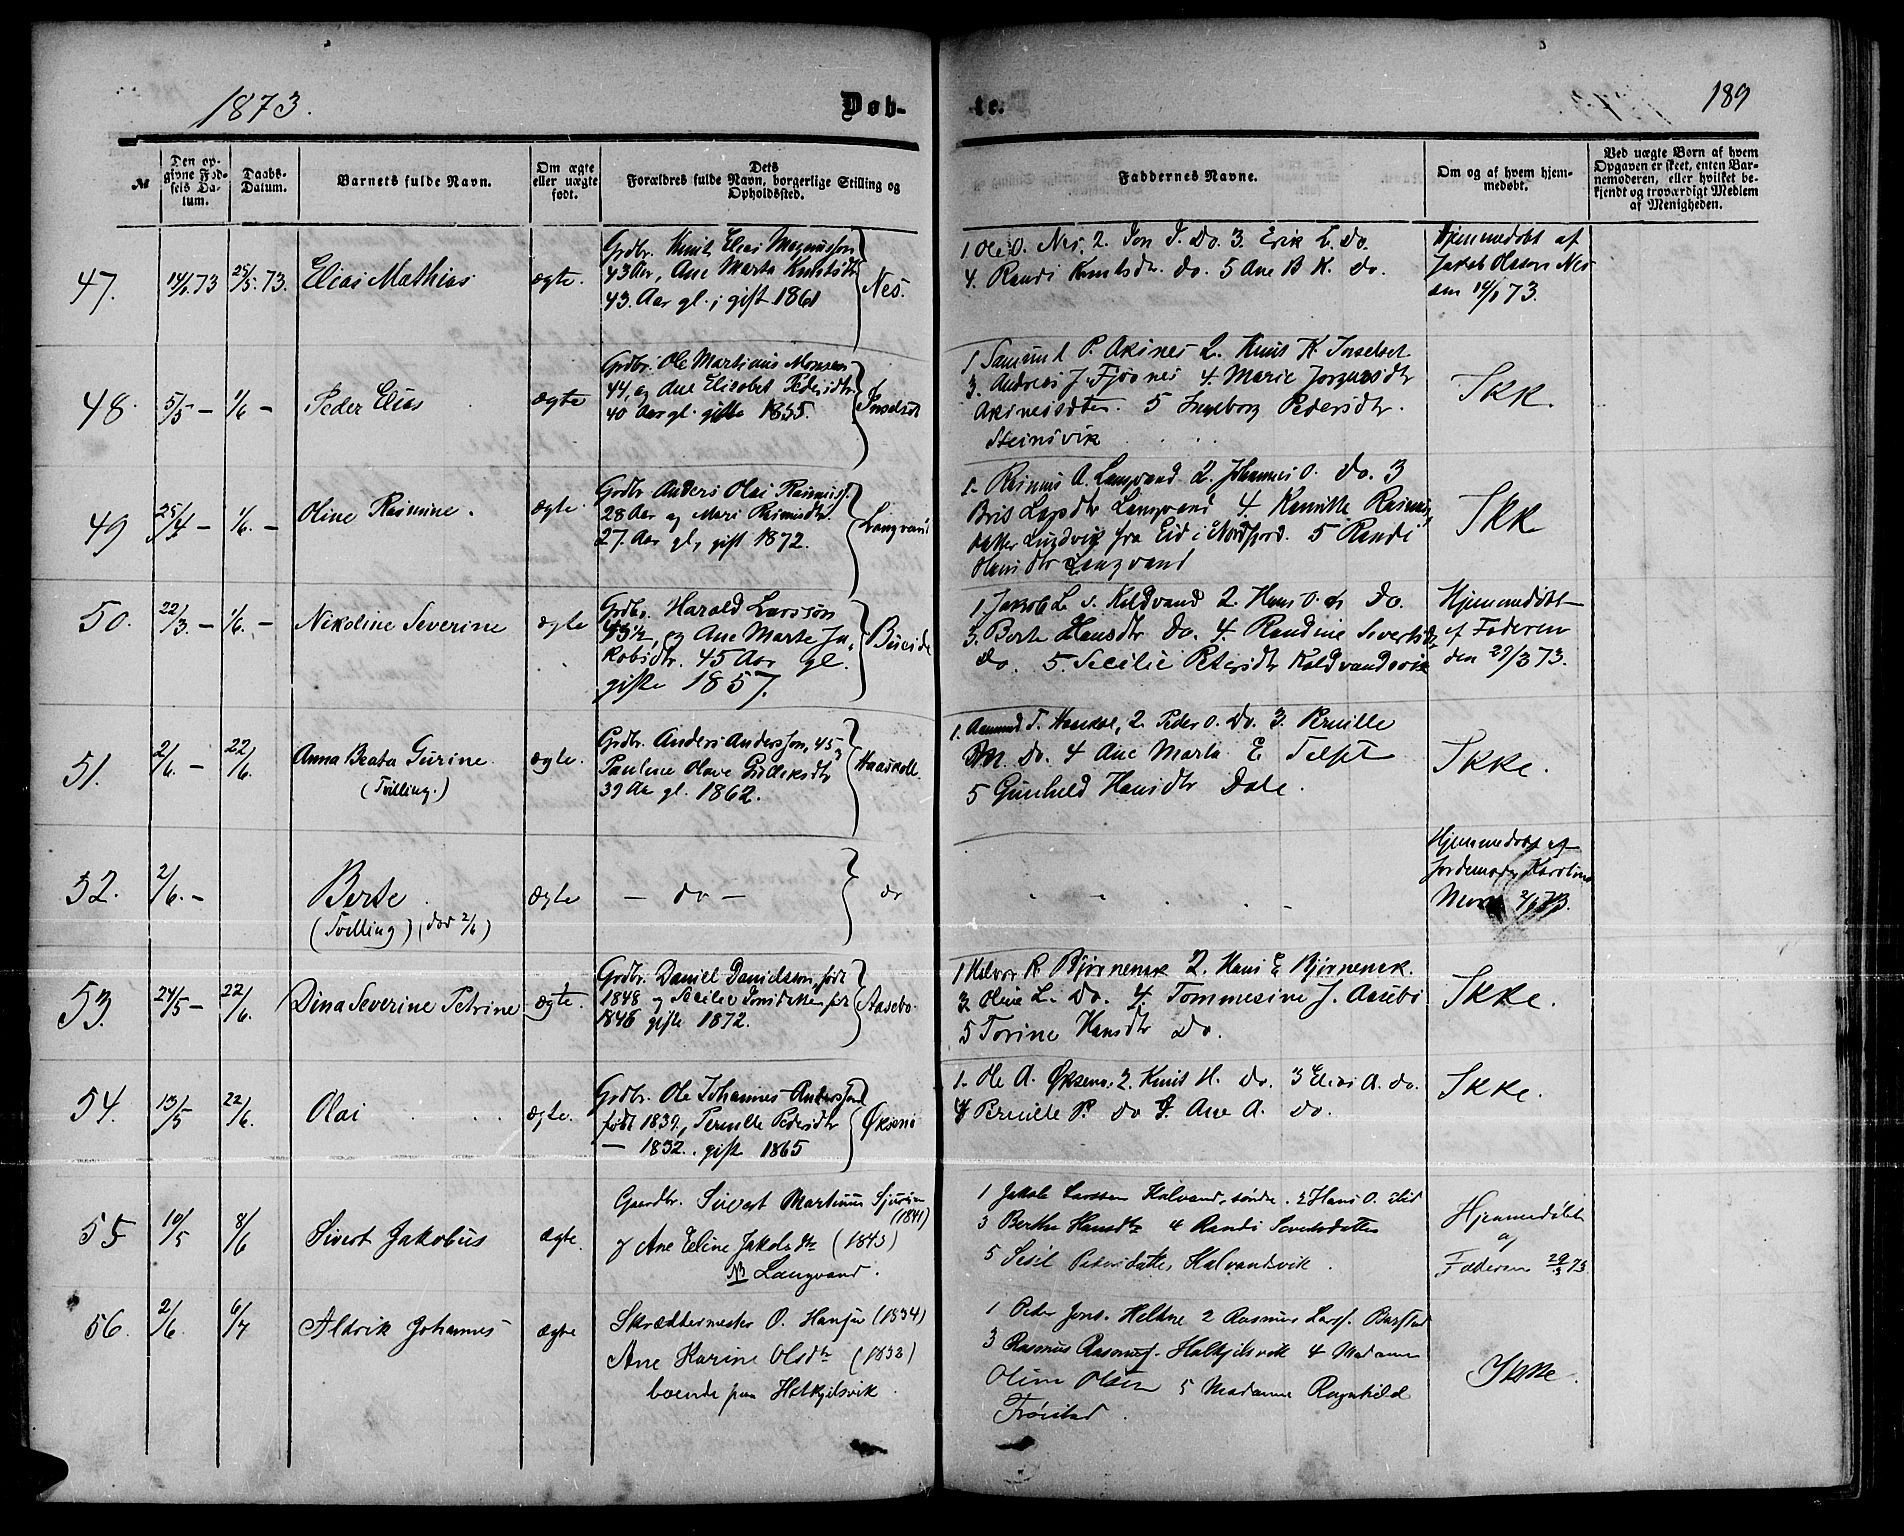 1873.
Døb-
te.
189
№
Den op-
givne Fød-
sels Da-
tum.
Daabs-
Datum.
Barnets fulde Navn.
Om ægte
eller uægte
født.
Dets
Forældres fulde Navn, borgerlige Stilling og
Opholdssted.
Faddernes Navne.
Om og af hvem hjem-
medøbt.
Ved uægte Børn af hvem
Opgaven er skeet, enten Bar-
nemoderen, eller hvilket be-
kjendt og troværdigt Medlem
af Menigheden.
47.
14/1 73
25/5. 73.
Elias Mathias
ægte.
Grdbr. Knut Elias Magnusson
43 Aar, Ane Marta Knutsdtr
43. Aar gl. gift 1861
Nes.
1. Ole O. Nes, 2. Jon J. Do. 3. Erik E. Do.
4. Randi Knutsdr. do. 5 Ane B K. do.
Hjemmedøbt af
Jakob Olsson Nes
den 14/1 73.
48.
5/5 –
1/6 –
Peder Elias
ægte
Grdbr. Ole Martinus Monsen
44, og Ane Elisabet Pedersdtr
40 Aar gl. gifte 1855.
Inselset
1 Samund P. Aknes 2. Knut K. Inselset
3. Andreas J. Fjøsnes 4. Marie Jorgensdtr
5 Ingeborg Pedersdtr.
Steinsvik
Ikk.
49
25/4 –
1/6. –
Oline Rasmine.
ægte.
Grdbr Anders Olai Rasmuss.
28 Aar og Mari Rasmusdtr.
27. Aar gl, gift 1872.
Langvand
1. Rasmus A. Langvand 2. Johannes O. Do. 3
Brit Langvand 4. Rasmus
datter fra Eid i Nordfjord. 5 Randi
Hansdtr Langvand
Ikk
50.
22/3. –
1/6. –
Nikoline Severine
ægte
Grdbr. Harald Larsson
og Ane Marte Ja,
kobsdtr. 45 Aar gl.
gifte 1857.
Bueide
1. Jakob L. s. Koldvand 2. Hans O. Do.
3. Berte Hansdtr Do. 4. Randine Severtsdtr
do. 5 Secilie Petersdtr Koldvandsvik
Hjemmedøbt
af Faderen
den 29/3 73.
51.
2/6. –
22/6.
Anna Beata Gurine.
(Tvilling.)
ægte.
Grdbr. Anders Andersson, 45
Pauline Olave Fredriksdtr
39 Aar gl. 1862.
Haaskole
1. Aamund T. 2. Peder O. Do. 3. Pernille
do. 4 Ane Marta E
5 Gunhild Hansdtr Dale.
Ikke.
52.
2/6. –
Berte
(Tvilling), død 2/6)
ægte
– do –
do
Hjemmedøbt af
Jordemoder Karoline
2/6 73.
53.
24/5 –
22/6.
Dina Severine Petrine
ægte.
Grdbr. Daniel Danielsen, født
1848 og Secilie Jonsdatter født
1846 gifte 1872.
Aasebø.
1 Halvor R. Bjørnenak 2. Hans E Bjørnenak.
3. Oline L. Do. 4. Tommesine J. Aasebø
5 Torine Hansdtr Do.
Ikke.
54.
13/5
22/6.
Olai
ægte.
Grdbr. Ole Johannes Anderssen
født 1839, Pernille Pedersdtr
– 1832. gift 1865
Øksenø
1. Ole A. Øksenø. 2. Knut H. do. 3 Elias A. do.
4 Pernille P. Do 5. Ane A. Do.
Ikke.
55
10/5
8/6
Sivert Jakobus
ægte.
Gaardbr. Sivert Martinus Sjursen
(1841)
og Ane Eline Jakobsdtr (1843)
NB Langvand.
1 Jakob Larssen Kalvand, søndre. 2 Hans O. Eid
3 Berthe Hansdtr 4 Randi Severtsdatter
5 Sesil Petersdatter Kalvandsvik.
Hjemmedøbt
af
Faderen 29/3 73.
56.
2/6
6/7
Aldrik Johannes
ægte
Skræddermester O. Hansen (1834)
Ane Karine Olsdtr (1838)
boende paa Halkjelsvik.
1 Peder Jons. Heltne 2 Rasmus Larss. Barstad
3 Rasmus Rasmuss. Halkjelsvik 4 Madame
Oline Olsen 5 Madame Ragnhild
Frøistad.
Ikke.